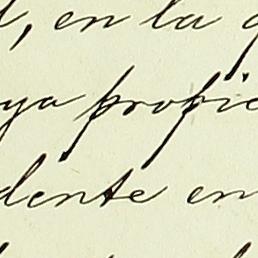 , en la
ya propie
dente en